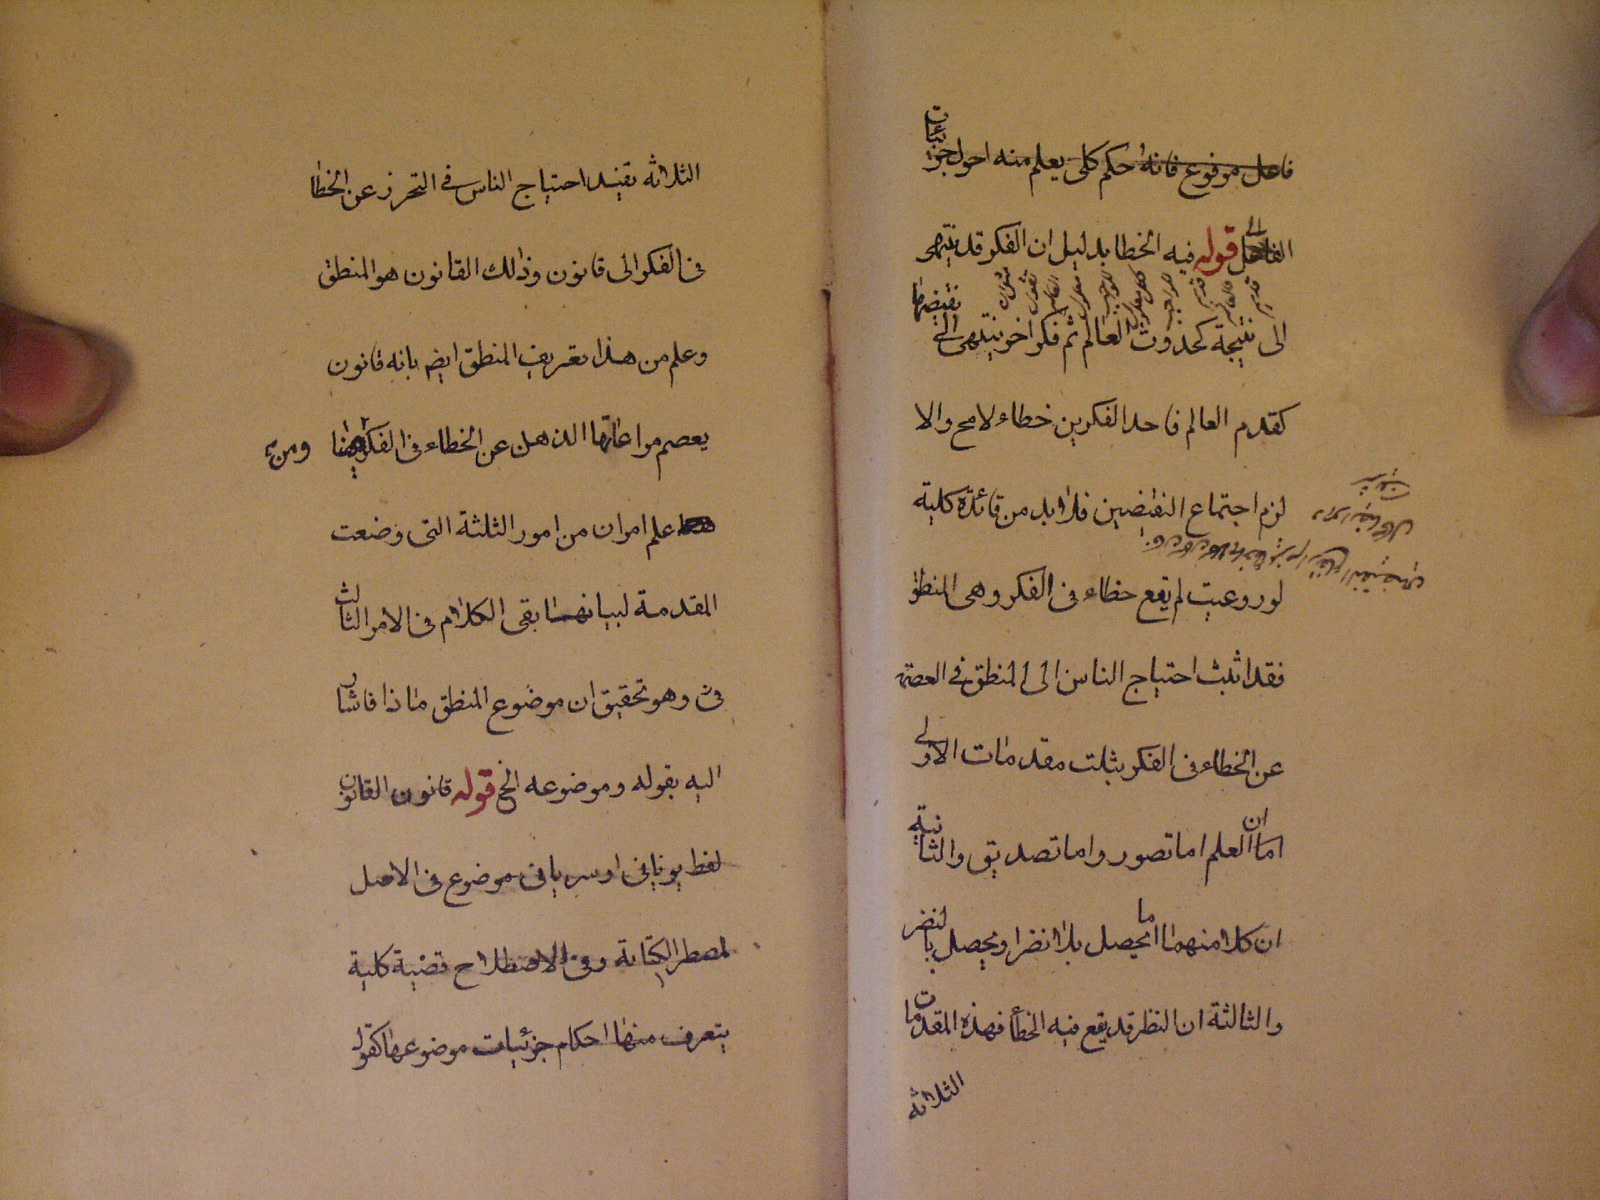 فاعل مرفوع فانه حكم كلى يعلم منه احول جزئيات
الفاعل قوله فيه الخطا بدليل ان الفكر قد ينتهى
الى نتيجة كحدوث العالم ثم فكر اخر ينتهى الى نقيضها
كقدم العالم فاحد الفكرين خطاء لا مح والا
لزم اجتماع النقيضين فلا بد من قائدة كلية
لو روعيت لم يقع خطاء فى الفكر وهى المنطق
فقد اثبث احتياج الناس الى المنطق فى العصمة
عن الخطاء فى الفكر بثلث مقدمات الاولى
ان العلم اما تصور واما تصديق والثانية
ان كلا منهما اما يحصل بلا نضر او يحصل بالنضر
والثالثة ان النظر قد يقع فيه الخطأ فهذه المقدمات
الثلاثه
الثلاثه تفيد احتياج الناس فى التحرز عن الخطا
فى الفكر الى قانون وذالك القانون هو المنطق
وعلم من هذا تعريف المنطق ايضا بانه قانون
يعصم مراعاتها الذهن عن الخطاء فى الفكر ومن
علم امران من امور الثلثة التى وضعت
المقدمة لبيانها بقى الكلام فى الامر الثالث
وهو تحقيق ان موضوع المنطق ماذا فاشار
اليه بقوله وموضوعه الخ قوله قانون القانون
لفظ يونانى او سريانى موضوع فى الاصل
لمصطر الكتابة وفى الاصطلاح قضية كلية
يتعرف منها احكام جزئيات موضوعها كقول